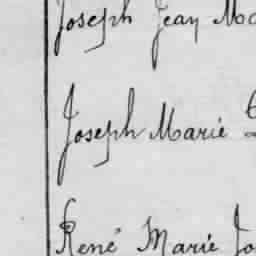 Joseph Jean Ma
Joseph Marie
René Marie Jo